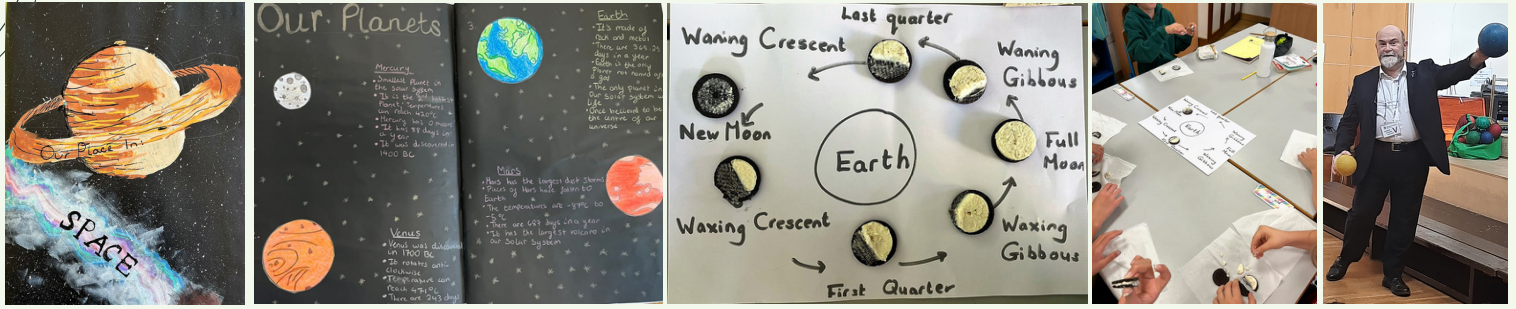 Our Place In:
SPACE
Our Planets
1.
Mercury
Smallest planet in
the solar system
It is the 2nd hottest
Planet. Temperatures
can reach 420°C
Mercury has 0 moons
It has 88 days in
a year
It was discovered in
1400 BC
Venus
Venus was discovered
in 1700 BC
It rotates anti
clockwise
Temperature can
reach 471°C
There are 243 days
3.
Earth
It's made of
rock and metal
There are 365.25
days in a year
Earth is the only
Planet not named after
a god
The only planet in
Our solar system
life
Once believed to be
the centre of our
universe
Mars
Mars has the largest dust storms
Pieces of Mars have fallen to
Earth
The temperatures are -87°C to
-5°C
There are 687 days in a year
It has the largest volcano in
our Solar System
Last quarter
Waning Crescent
Waning
Gibbous
New Moon
Earth
Full
Moon
Waxing Crescent
Waxing
Gibbous
First Quarter
Earth